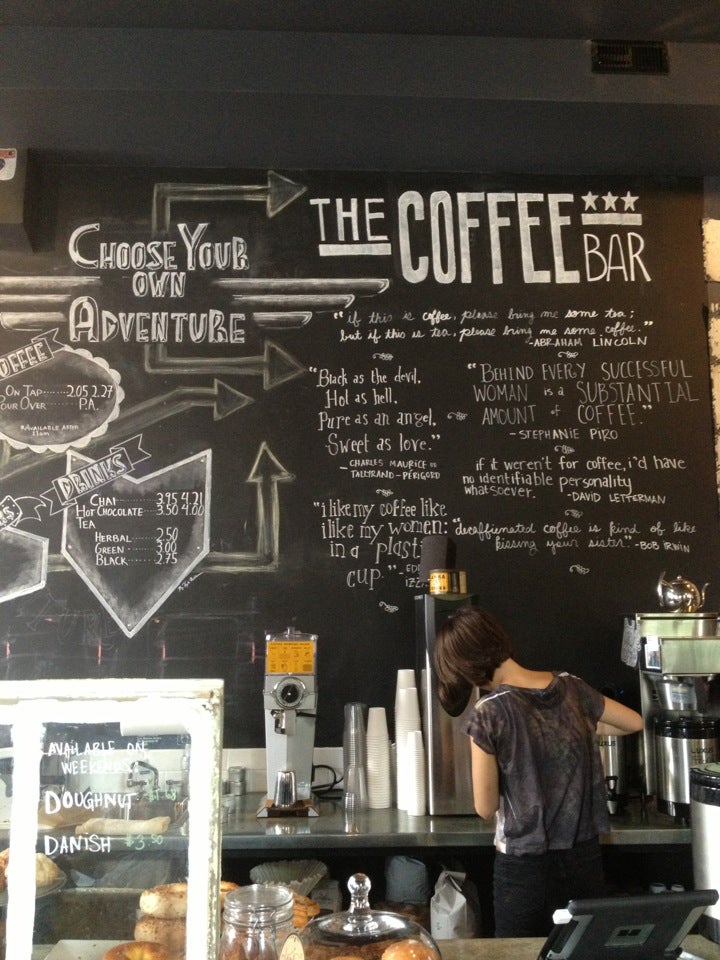 CHOOSE YOUR
OWN
ADVENTURE
THE COFFEE BAR
"if this is coffee, please bring me some tea;
but if this is tea, please bring me some coffee."
-ABRAHAM LINCOLN
"Black as the devil,
Hot as hell,
Pure as an angel,
Sweet as love."
-CHARLES MAURICE DE
TALLYRAND-PÉRIGORD
"BEHIND EVERY SUCCESSFUL
WOMAN is a SUBSTANTIAL
AMOUNT of COFFEE."
-STEPHANIE PIRO
if it weren't for coffee, i'd have
no identifiable personality
whatsoever. -DAVID LETTERMAN
"i like my coffee like
i like my women:
in a
cup."
"decaffienated coffee is kind of like
kissing your sister." -BOB IRWIN
ON TAP 2.05 2.27
OVER P.A.
AVAILABLE AFTER
11am
DRINKS
CHAI 3.95 4.21
HOT CHOCOLATE 3.50 4.00
TEA
HERBAL 2.50
GREEN 3.00
BLACK 2.75
AVAILABLE ON
WEEKENDS
DOUGHNUT
DANISH $3.50